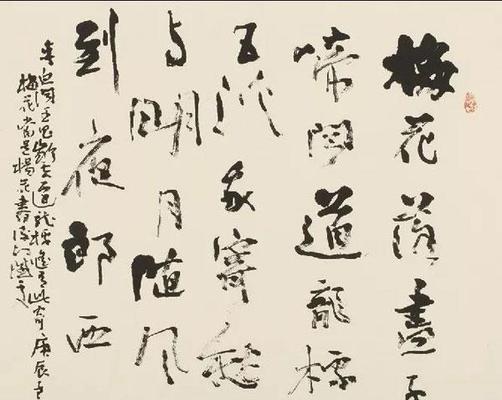 梅花落盡子
啼聞道龍標
五溪我寄愁
与明月随风
到夜郎西
李白聞王昌齡左遷龍標遙有此寄庚辰
梅花當是楊花書後